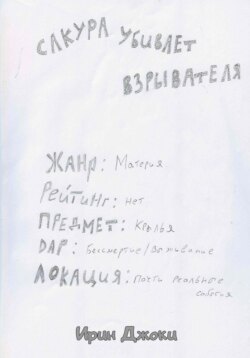 САКУРА УБИВАЕТ
ВЗРЫВАТЕЛЯ
ЖАНР: Материя
РЕЙТИНГ: нет
ПРЕДМЕТ: Крылья
DАР: Бессмертие/Выживание
ЛОКАЦИЯ: Почти реальные
события
Ирин Джоки